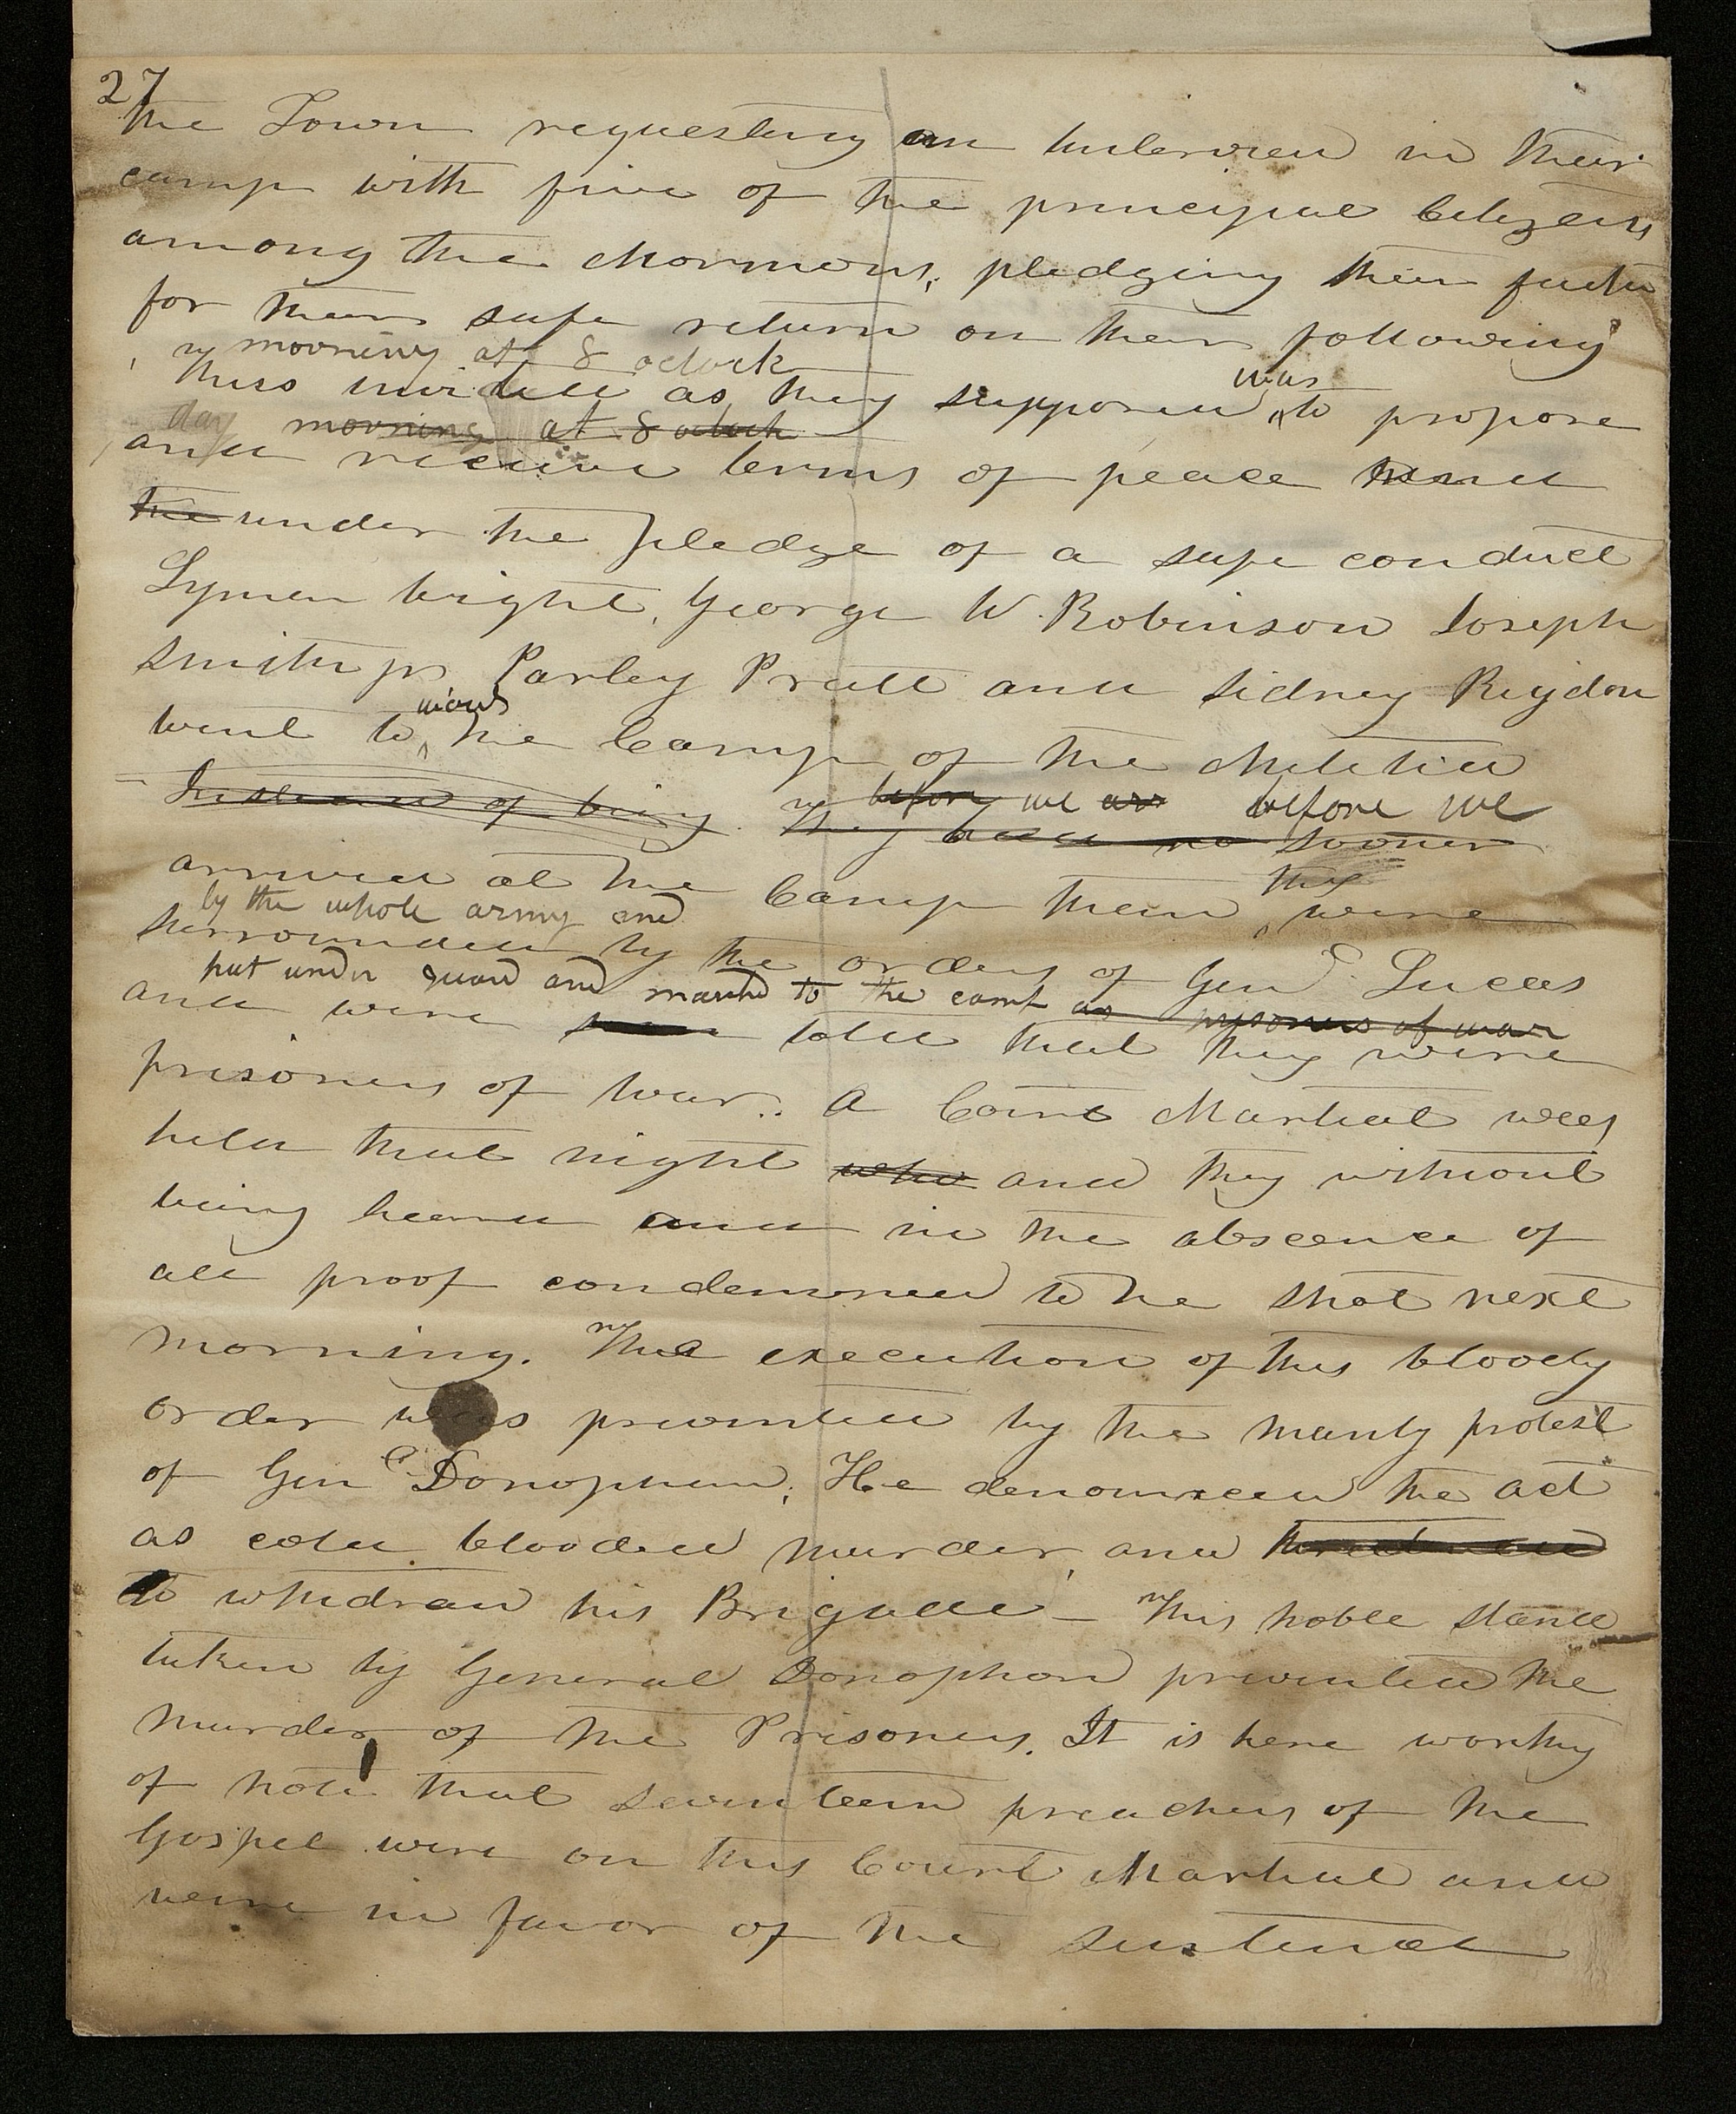 27
the Town requesting an interview in their
camp with five of the principal Citizens
among the Mormons, pledging their faith
for their safe return on the following
morning at 8 oclock
thus invited as they supposed was to propose
day morning at 8 oclock
and receive terms of peace and
the under the pledge of a safe conduct
Lyman Wight, George W. Robinson Joseph
Smith jr Parley Pratt and Sidney Rigdon
went towards the Camp of the Militia
Instead of being They before we are before we
had no sooner
arrived at the Camp then they were
by the whole army and
surrounded by the orders of Genl Lucas
put under guard and marched to the camp as prisoners of war
and were told that they were
prisoners of war. A Court Martial was
held that night who and they without
being heard and in the abscence of
all proof condemned to be shot next
morning. The execution of this bloody
order was prevented by the manly protest
of Genl Donophan. He denounced the act
as cold blooded murder, and threatened
to whidraw his Brigade – This noble stand
taken by General Donophon prevented the
murder of the Prisoners. It is here worthy
of note that seventeen preachers of the
Gospel were on this Court Martial and
were in favor of the sentence